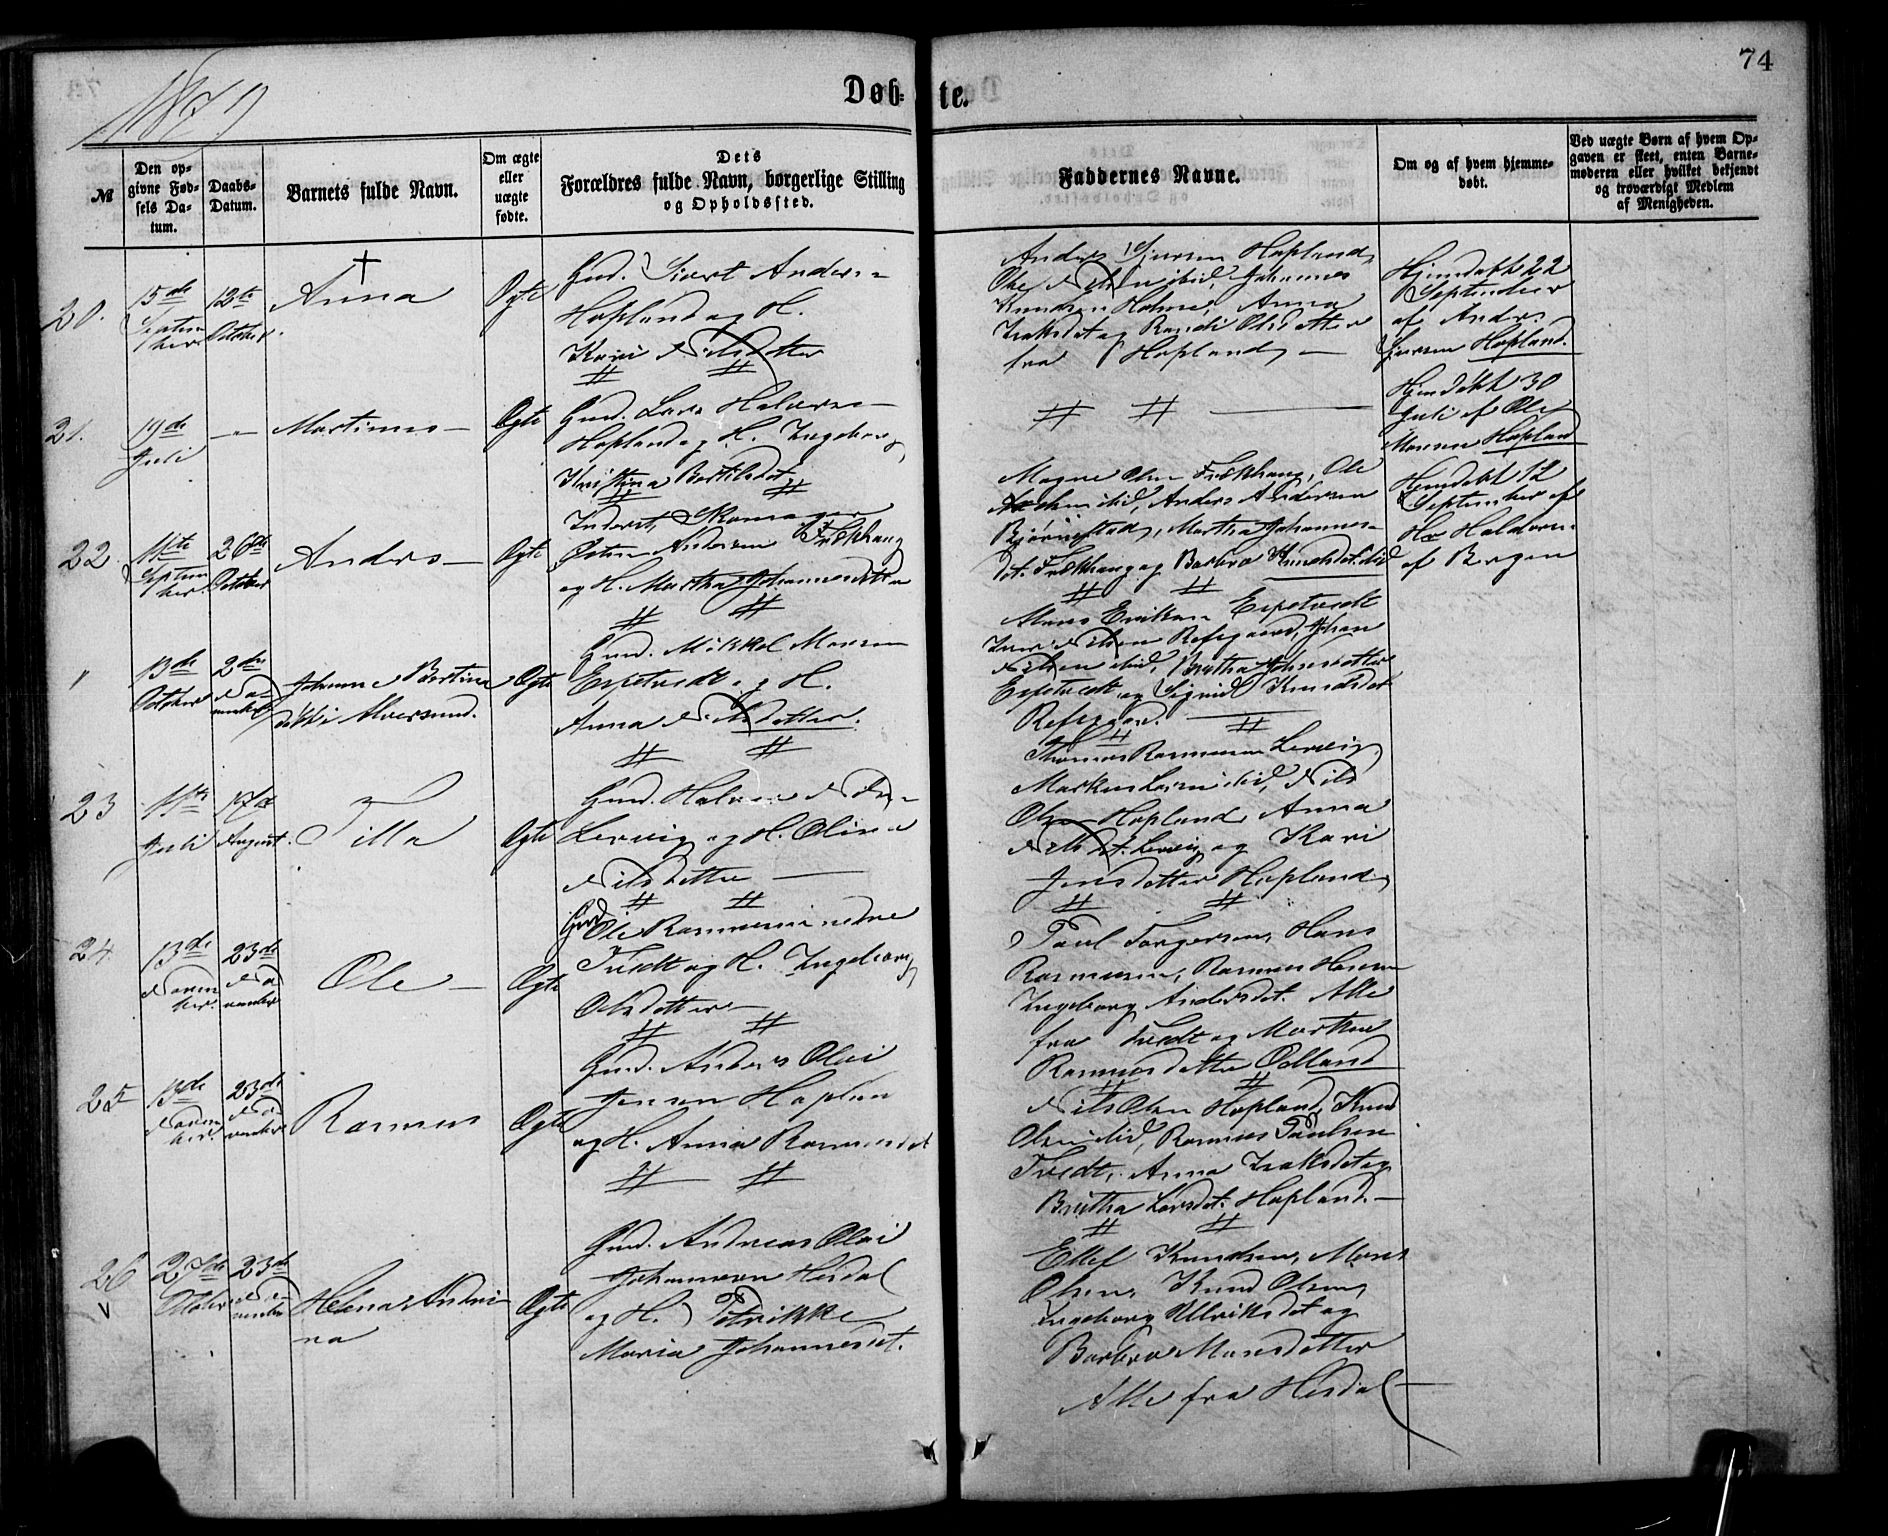 74
1879
Døb-te.
№
Den op-
givne Fød-
sels Da-
tum.
Daabs-
Datum.
Barnets fulde Navn.
Om ægte
eller
uægte
fødte.
Dets
Forældres fulde Navn, borgerlige Stilling
og Opholdssted.
Faddernes Navne.
Om og af hvem hjemme-
døbt.
Ved uægte Børn af hvem Op-
gaven er skeet, enten Barne-
moderen eller hvilket bekjendt
og troværdigt Medlem
af Menigheden.
20.
15de
September
12te
October.
†
Anna
Ægte
Gmd. Sjort Anders-
Hopland og H.
Kari Nilsdatter
Anders Sjursen Hopland,
Ole Nilsen ibid, Johannes
Knudsen Holme, Anna
Isaksdat og Randi Olsdatter
fra Hopland
Hjemdøbt 22
September
af Anders
Sjursen Hopland.
21.
19de
Juli
Martinus
Ægte
Gmd. Lars Halvors
Hopland og H. Ingeborg
Kristina Bertilsdat
Hjemdøbt 30
Juli af Ole
Monsen Hopland
22
11te
September
26de
October
Anders
Ægte
Inderst, Skomager
Østen Andersen
og H. Martha Johannesdatter
Magne Olsen
ibid, Anders Andersen
Martha Johannes-
dt. og Barbra Knudsdt. ibid
Hjemdøbt 12
September af
Halvorsen
af Bergen
"
13de
October
2den
November
Johanne Bertina
døbt i Alversund.
Ægte
Gmd. Mikkel Monsen
Espetvedt og H.
Anna Nilsdatter.
Mons Eriksen Espetvedt
Iver Nilsen Refsgaard, Johan
Nilsen ibid, Brithe Johnsdatter
Espetvedt og Sigrid Knudsdat
Refsgaard.
23
11te
Juli
17de
August.
Tilla
Ægte
Gmd. Halvor Nils-
Lervig og H. Olina
Nilsdatter
Thomas Rasmussen Lervig,
Markus Larsen ibid, Nils
Olsen Hopland, Anna
Nilsdt. Lervig og Kari
Jensdatter Hopland
24
13de
November.
23de
November
Ole
Ægte
Gmd
Ole Rasmussen nedre
Tvedt og H. Ingeborg
Olsdatter
Paul Torgersen, Hans
Rasmussen, Rasmus Hansen
Ingeborg Andersdt. Alle
fra Tvedt og Marthe
Rasmusdatter Odland
25
13de
November
23de
November
Rasmus
Ægte
Gmd. Anders Olai
Jensen Hoplan
og H. Anna Rasmusdt
Nils Olsen Hopland, Knud
Olsen ibid, Rasmus Paulsen
Tvedt, Anna Isaksdat og
Brithe Larsdat. Hopland.
26
27de
October
23de
November
Helena Andri-
na
Ægte
Gmd. Andreas Olai
Johannesen Hisdal
og H. Petrikke
Maria Johannesdt.
Ellef Knudsen, Mons
Olsen, Knud Olsen,
Ingeborg Ulriksdat og
Barbro Monsdatter
Alle fra Hisdal